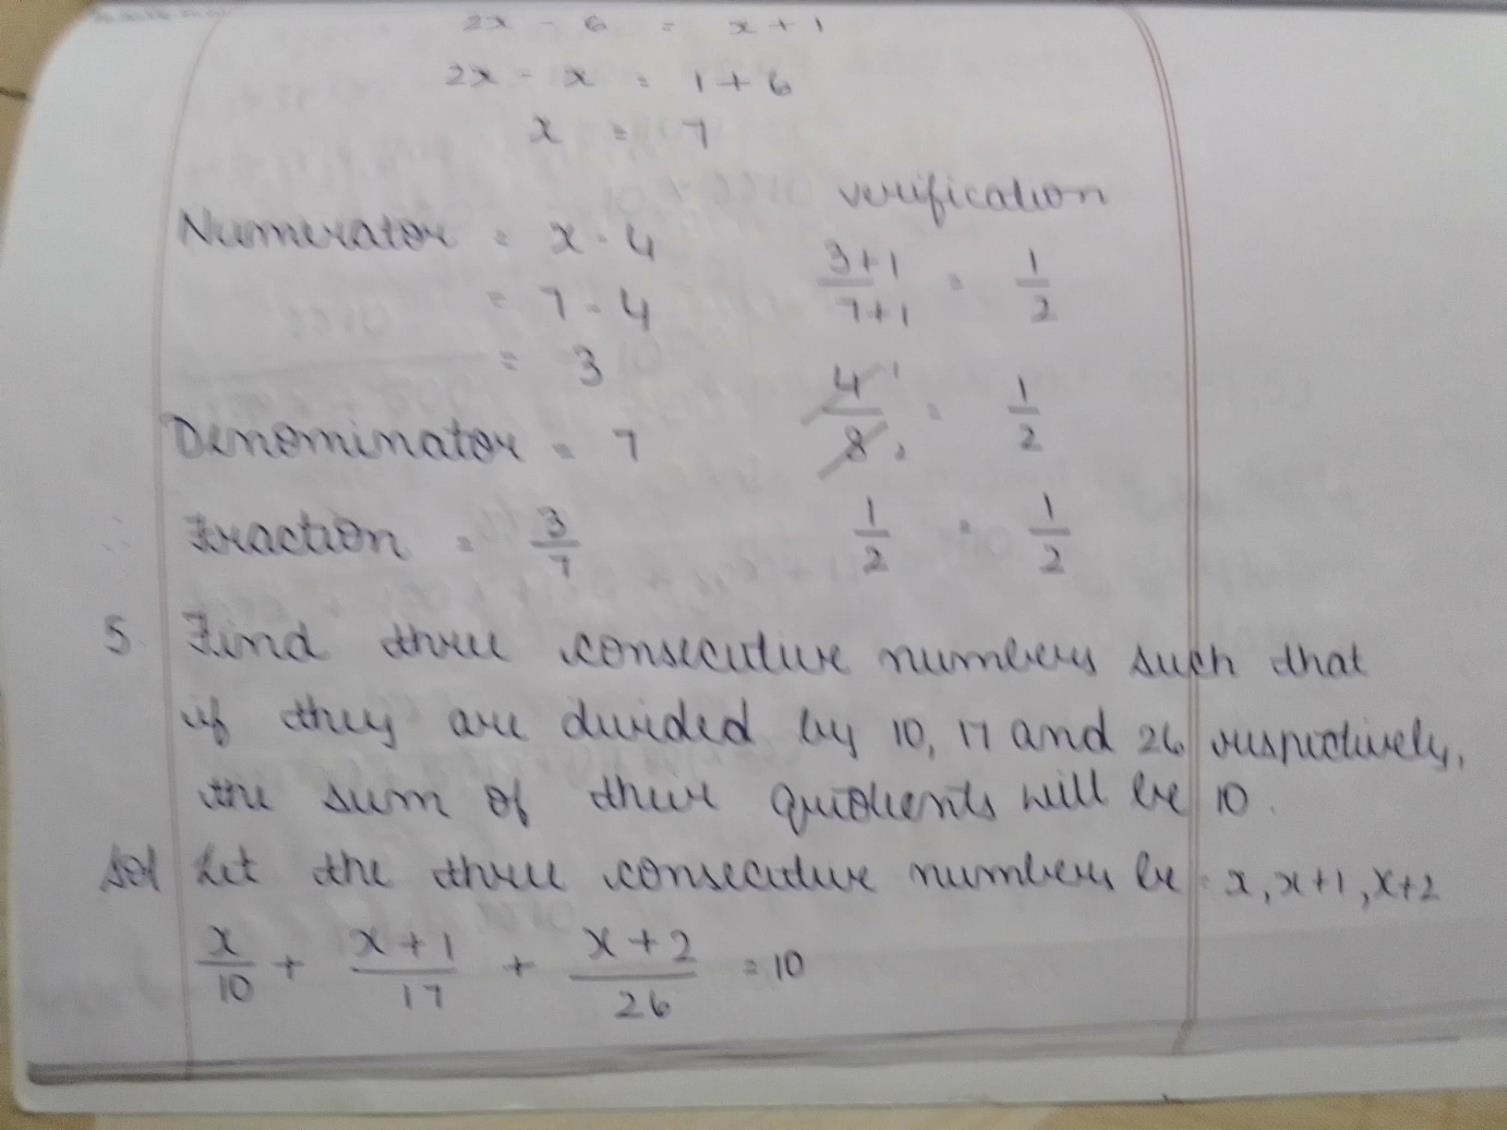 2x - 6 = x + 1
2x - x = 1 + 6
x = 7
verification
Numerator = x - 4
= 7 - 4
= 3
3+1/7+1 = 1/2
4/8 1 2 = 1/2
Denominator = 7
∴ Fraction = 3/7
1/2 = 1/2
5. Find three consecutive numbers such that
if they are divided by 10, 17 and 26 respectively,
the sum of their quotients will be 10.
Sol Let the three consecutive numbers be = x, x+1, x+2
x/10 + x+1/17 + x+2/26 = 10